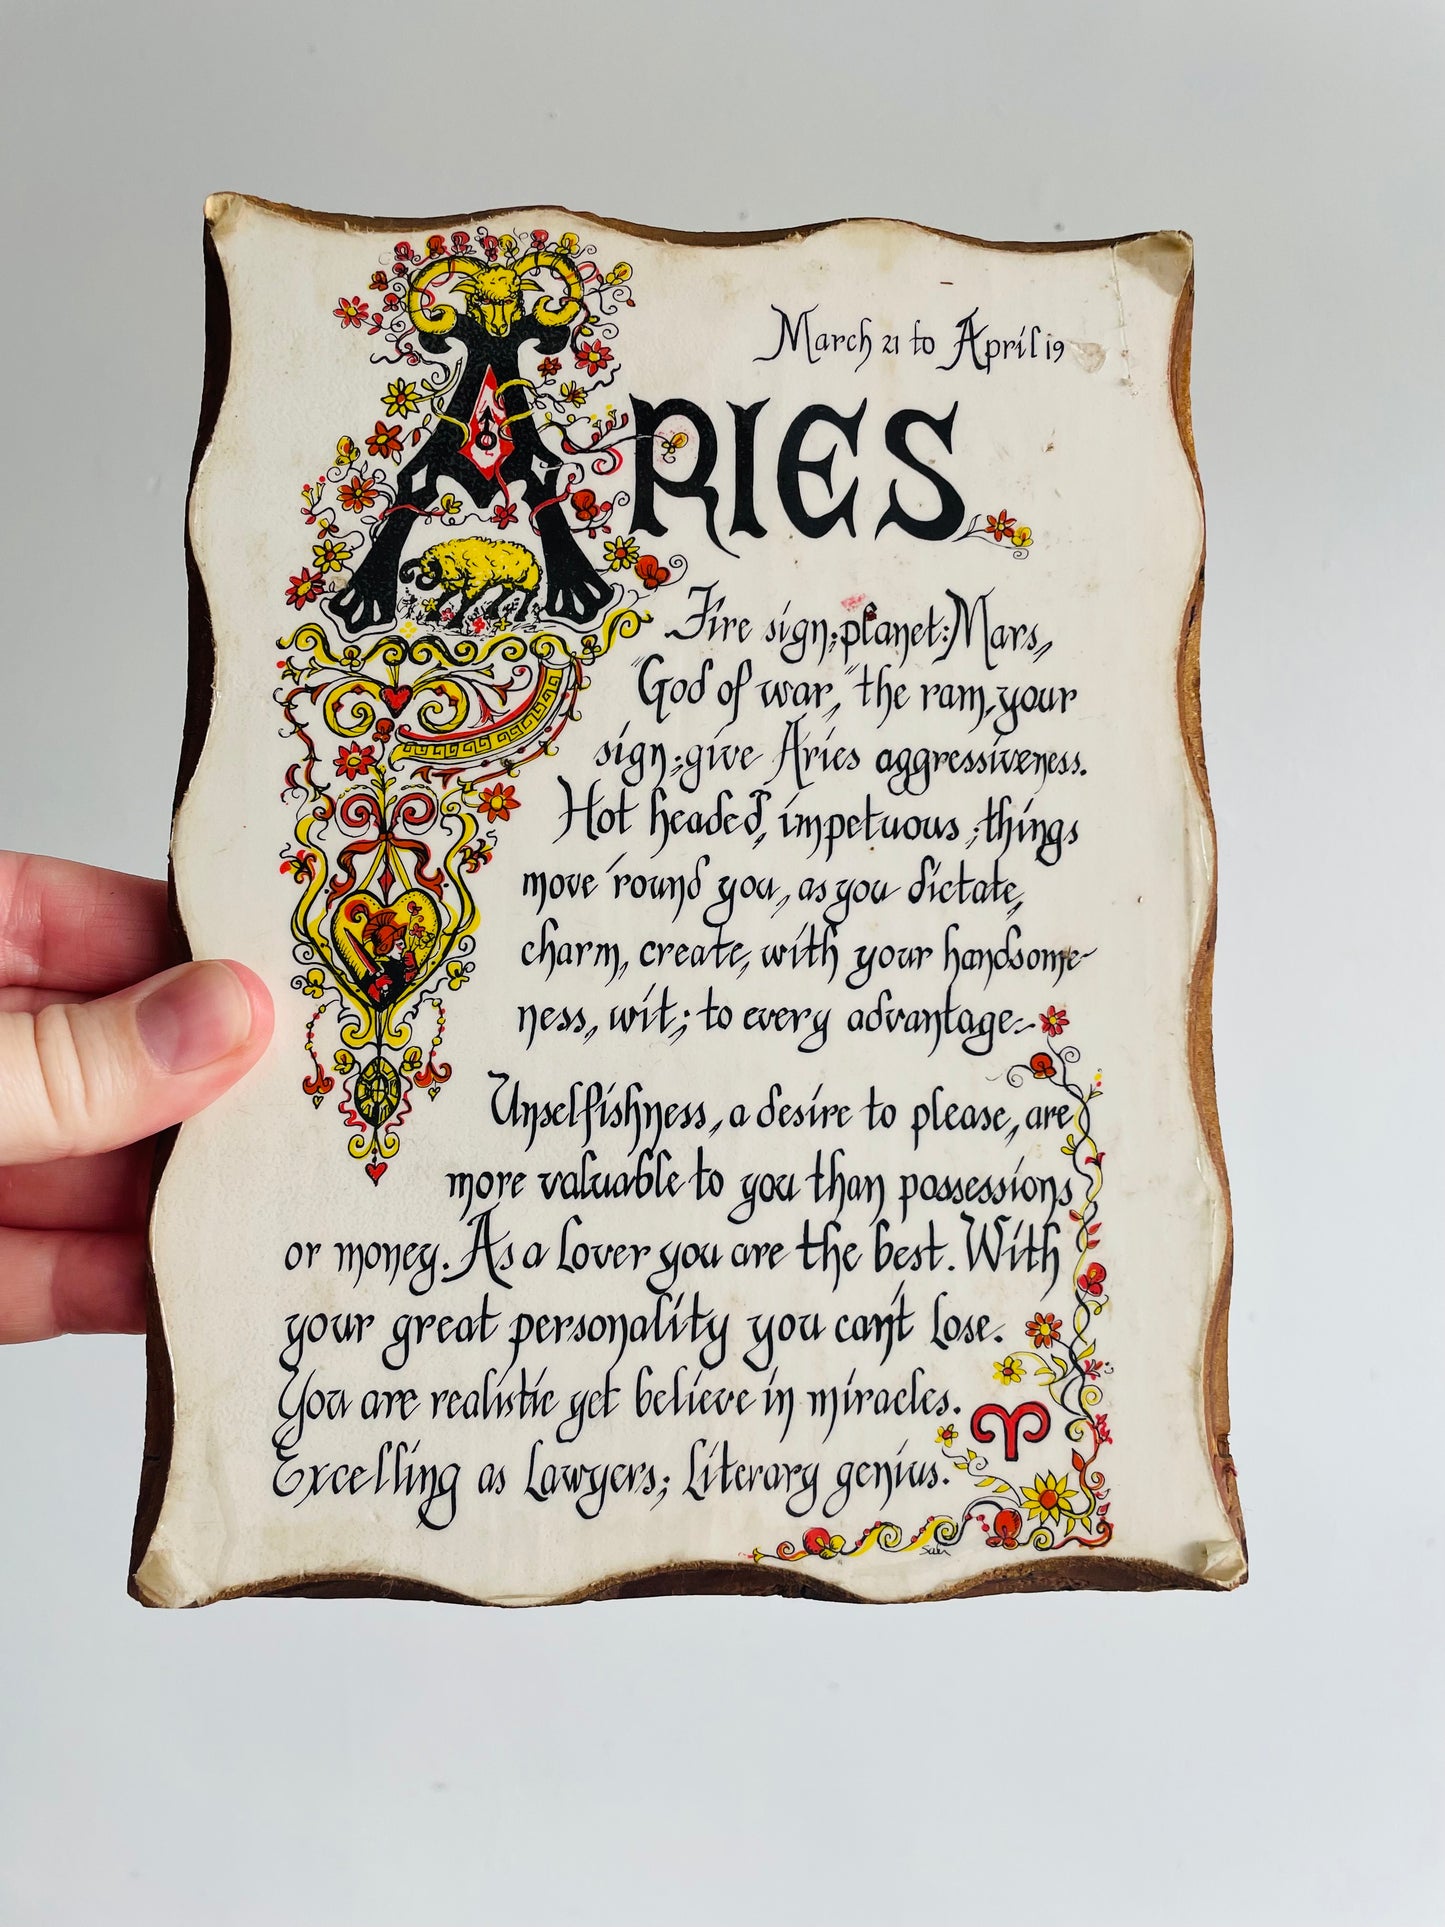 March 21 to April 19
ARIES
Fire sign; planet: Mars,
"God of war," the ram, your
sign; give Aries aggressiveness.
Hot headed, impetuous; things
move 'round you, as you dictate,
charm, create, with your handsome-
ness, wit; to every advantage:-
Unselfishness, a desire to please, are
more valuable to you than possessions
or money. As a lover you are the best. With
your great personality you can't lose.
You are realistic yet believe in miracles.
Excelling as Lawyers; Literary genius.